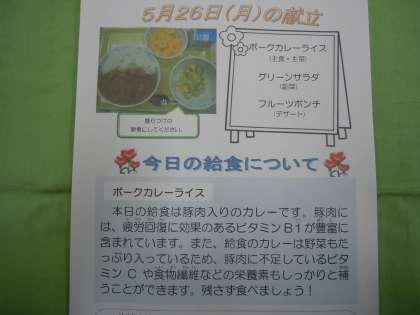 5月26日(月)の献立
ポークカレーライス
(主食・主菜)
グリーンサラダ
(副菜)
フルーツポンチ
(デザート)
盛りつけの
参考にしてください。
今日の給食について
ポークカレーライス
本日の給食は豚肉入りのカレーです。豚肉に
は、疲労回復に効果のあるビタミンB1が豊富に
含まれています。また、給食のカレーは野菜もた
っぷり入っているため、豚肉に不足しているビタ
ミンCや食物繊維などの栄養素もしっかりと補
うことができます。残さず食べましょう！